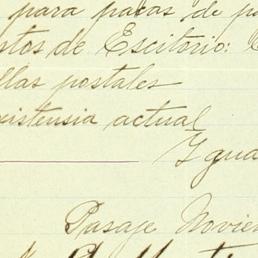 para pacas de p
stos de Escritorio:
llas postales
xistensia actual
Ygua
Pasaje Novie